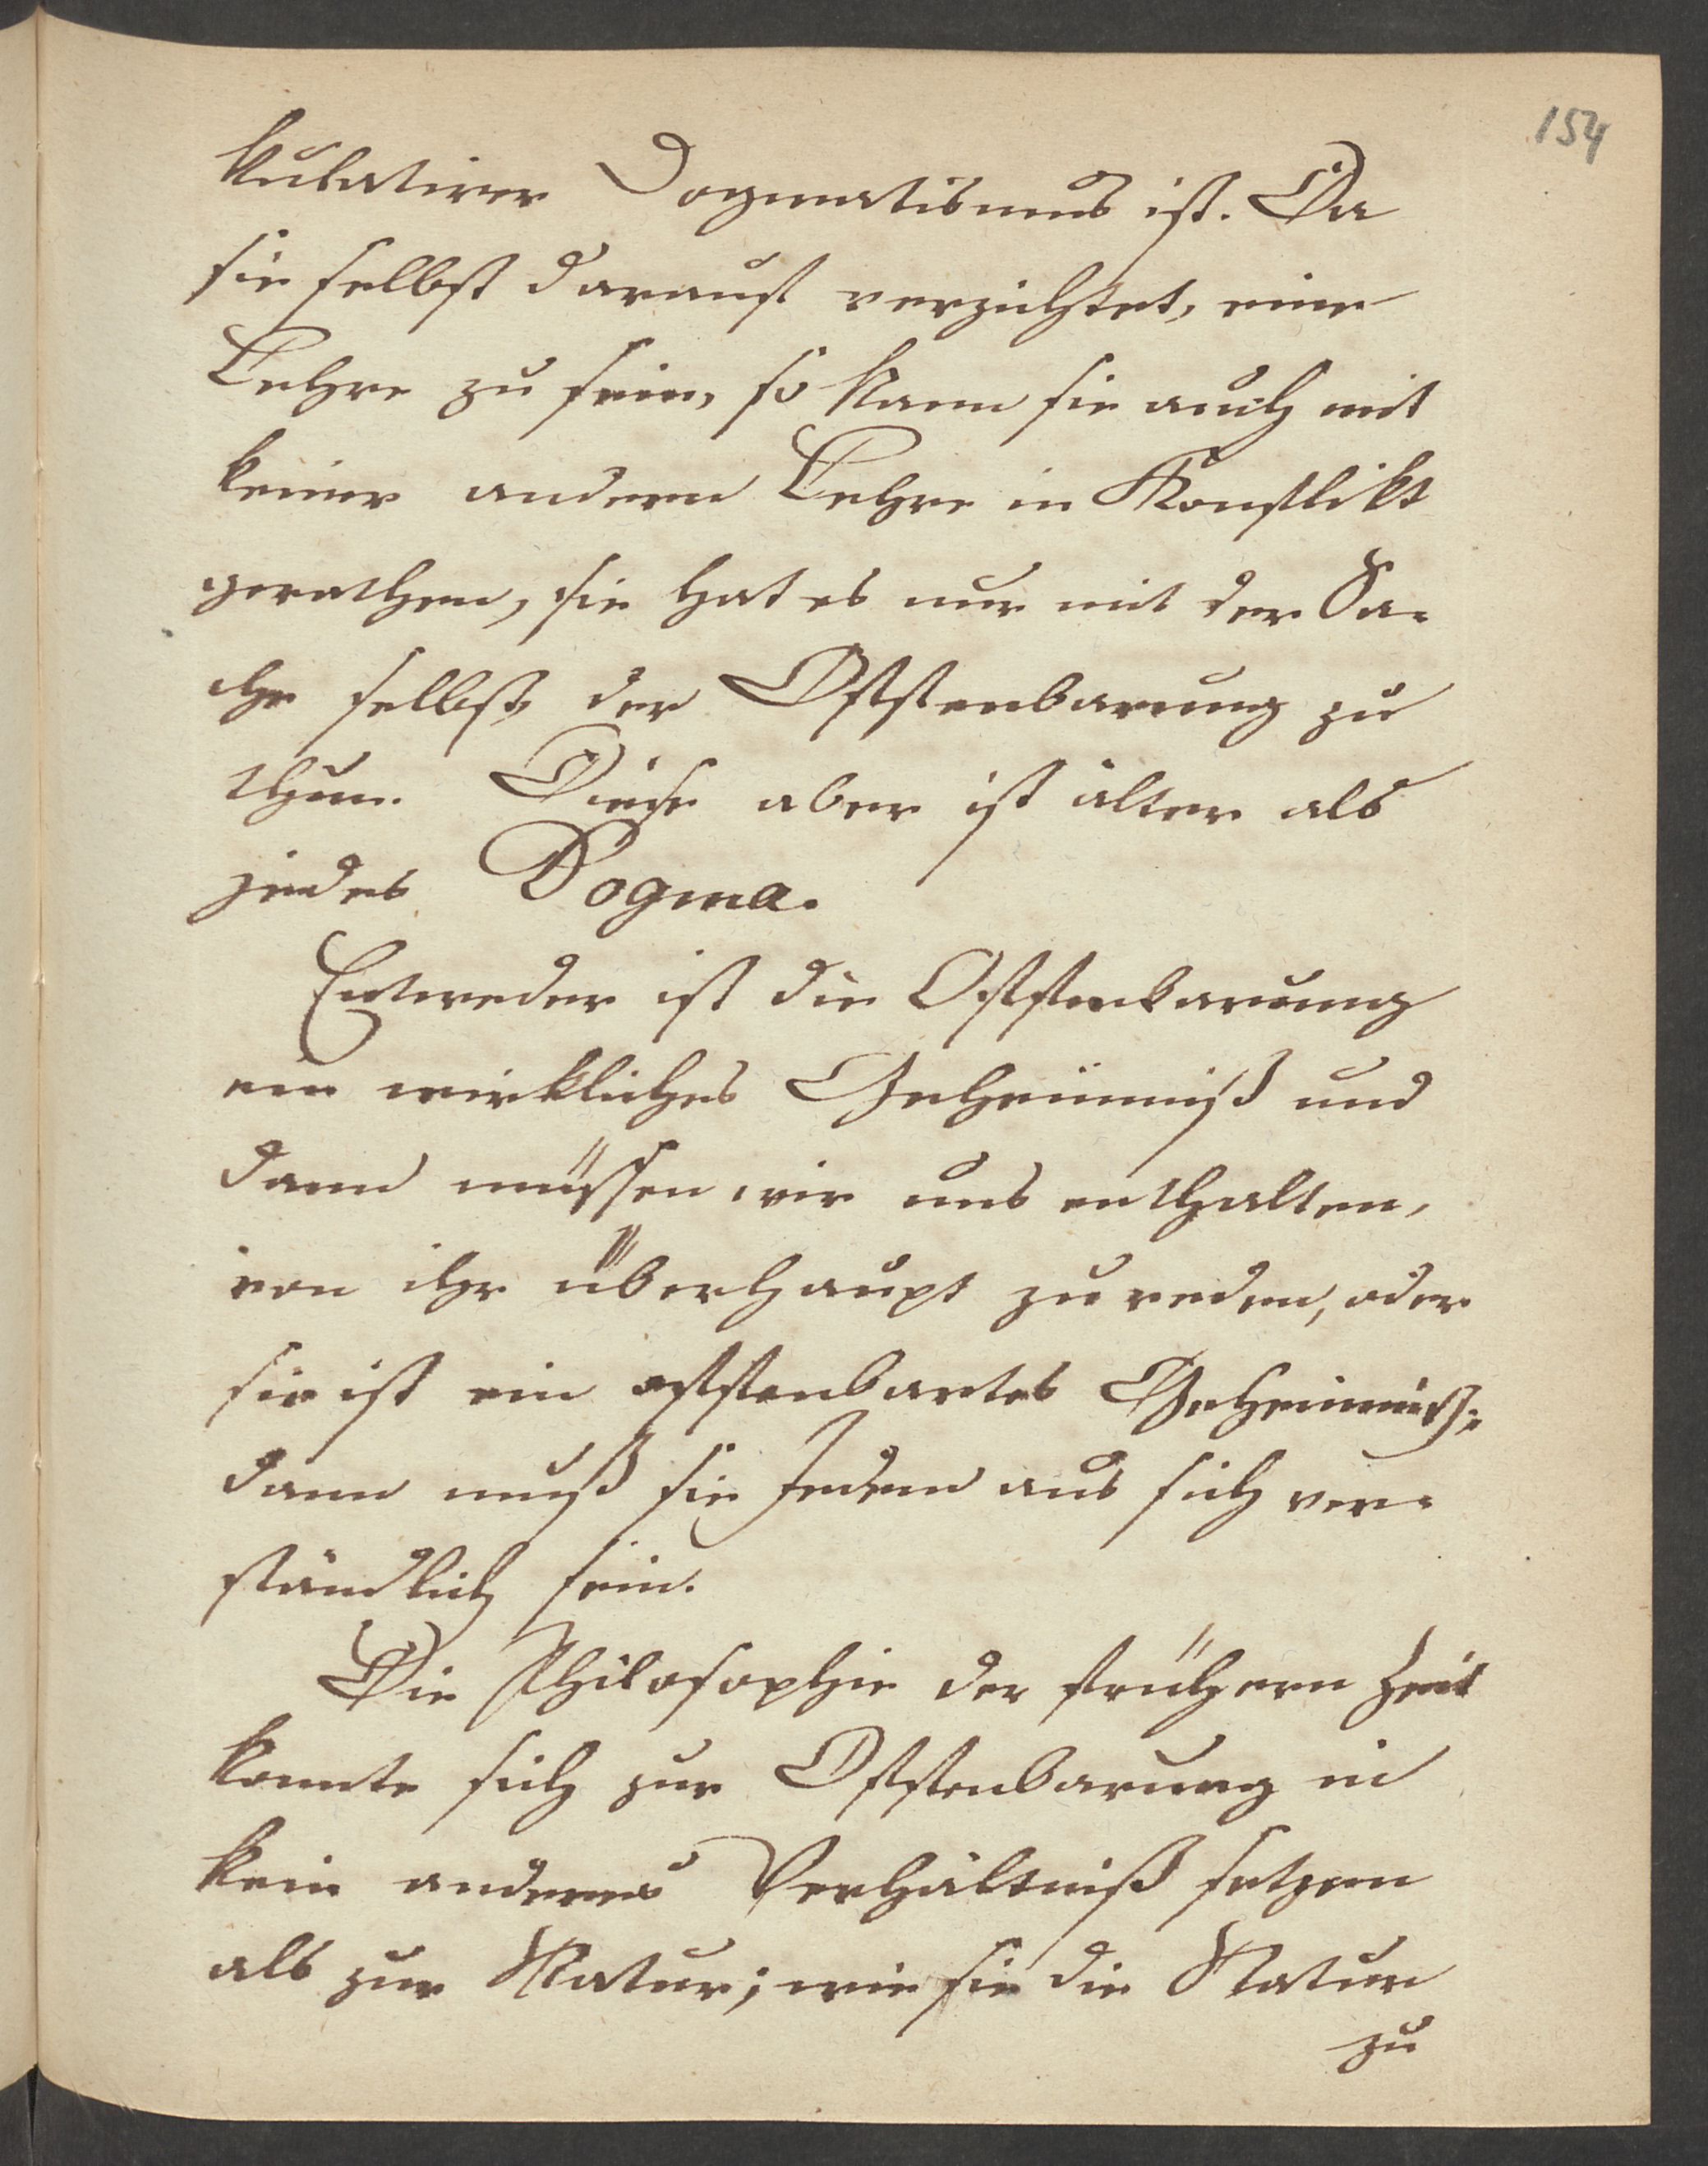 154
kulativer Dogmatismus ist. Da
sie selbst darauf verzichtet, eine
Lehre zu sein, so kann sie auch mit
keiner andern Lehre in Konflikt
gerathen, sie hat es nur mit der Sa-
che selbst der Offenbarung zu
thun. Diese aber ist älter als
jedes Dogma.
Entweder ist die Offenbarung
ein wirkliches Geheimniß und
dann müssen wir uns enthalten,
von ihr überhaupt zu reden, oder
sie ist ein offenbartes Geheimniß:
dann muß sie Jedem aus sich ver-
ständlich sein.
Die Philosophie der frühern Zeit
konnte sich zur Offenbarung in
kein anderes Verhältniß setzen
als zur Natur; wie sie die Natur
zu